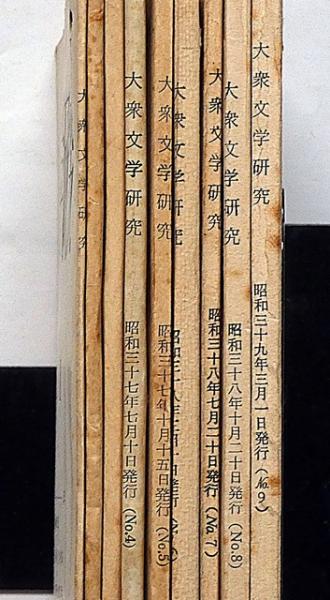 大衆文学研究 昭和三十九年三月一日発行(No.9)
大衆文学研究 昭和三十八年十月二十日発行(No.8)
大衆文学研究 昭和三十八年七月二十日発行(No.7)
大衆文学研究
大衆文学研究 昭和三十七年十月十五日発行(No.5)
大衆文学研究 昭和三十七年七月十日発行(No.4)
大衆文学研究